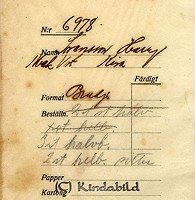 N:r 6978.
Namn Svensson Harry
Kisa
Färdigt
Format
Beställn. 2 st st halv
1 st helb
3 st halvb.
2 st helb sitter
Papper
Kartong
(C) Kindabild